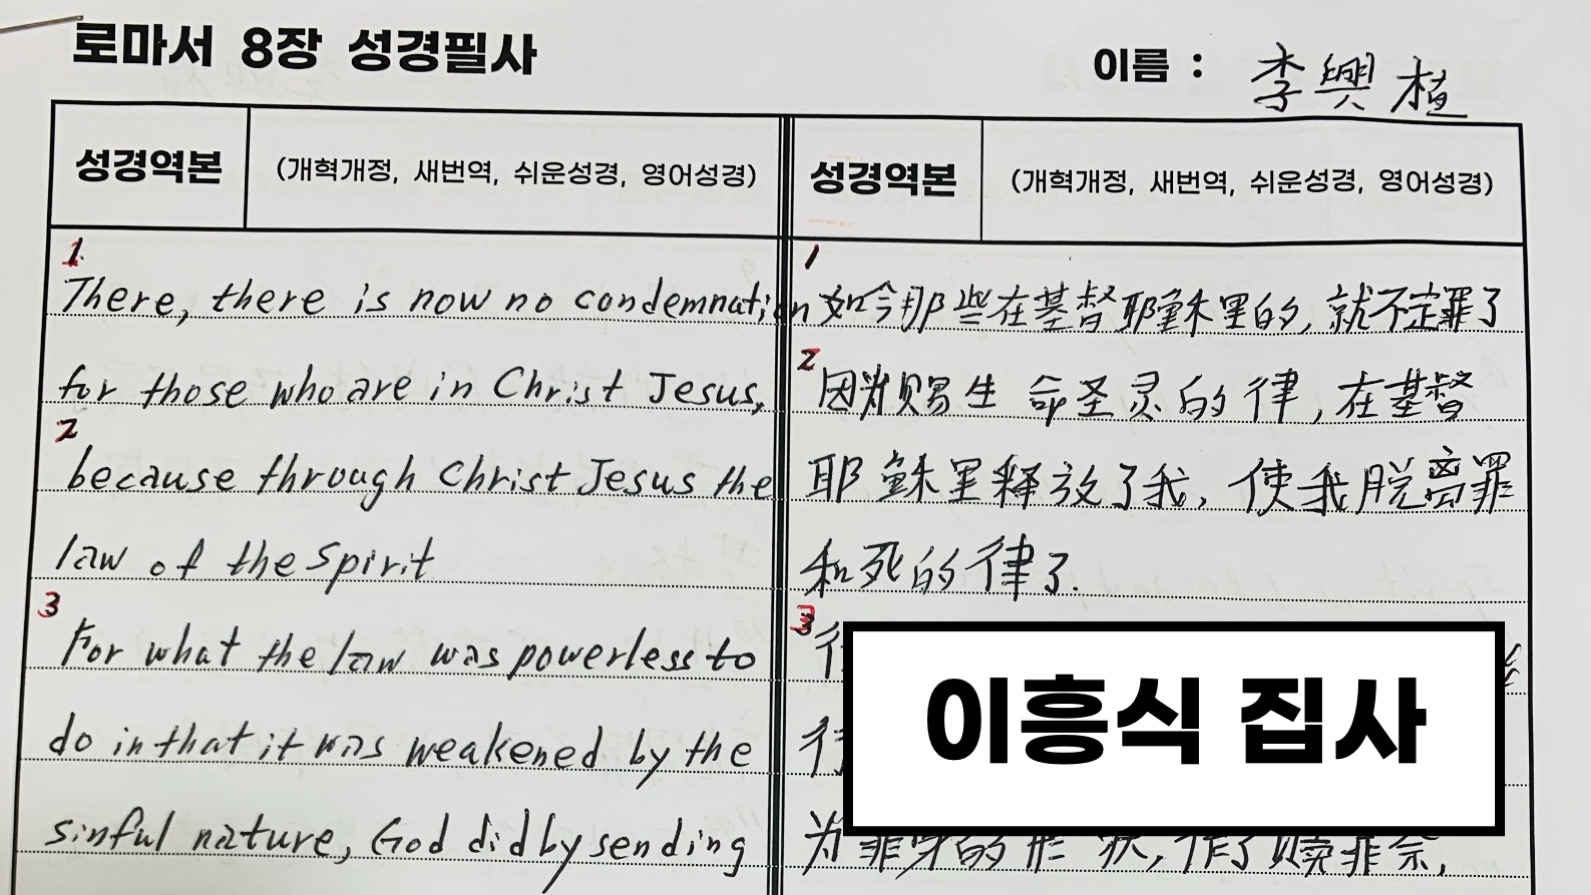 로마서 8장 성경필사
이름 : 李興植
성경역본 (개혁개정, 새번역, 쉬운성경, 영어성경)
성경역본 (개혁개정, 새번역, 쉬운성경, 영어성경)
1
There, there is now no condemnation
for those who are in Christ Jesus,
2
because through Christ Jesus the
law of the Spirit
3
For what the law was powerless to
do in that it was weakened by the
sinful nature, God did by sending
1
如今那些在基督耶穌里的, 就不定罪了
2
因为赐生命圣灵的律, 在基督
耶穌里释放了我, 使我脱离罪
和死的律了.
3
为罪身的形状, 作了赎罪祭,
이흥식 집사